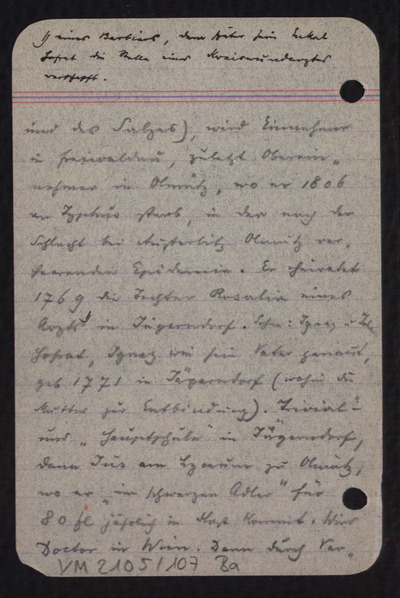 1) eines Barbiers, dem später sein Enkel
Hofrat die Stelle eines Kreiswundarztes
verschafft.
und des Salzes), wird Einnehmer
in Freiwaldau, zuletzt Oberein-
nehmer in Olmütz, wo er 1806
an Typhus starb, in der nach der
Schlacht bei Austerlitz Olmütz ver-
heerenden Epidemie. Er heiratet
1769 die Tochter Rosalia eines
Arztes in Jägerndorf. Ignaz
Hofrat, Ignaz wie sein Vater genannt,
geb 1771 in Jägerndorf (wohin die
Mutter zur Entbindung). Trivial-
und "Hauptschule" in Jägerndorf,
dann Jus am Lyceum zu Olmütz,
wo er "im schwarzen Adler" für
80 fl jährlich in Kost kommt. Wird
Doctor in Wien. Dann durch Ver-
VM 2105/107 Ba